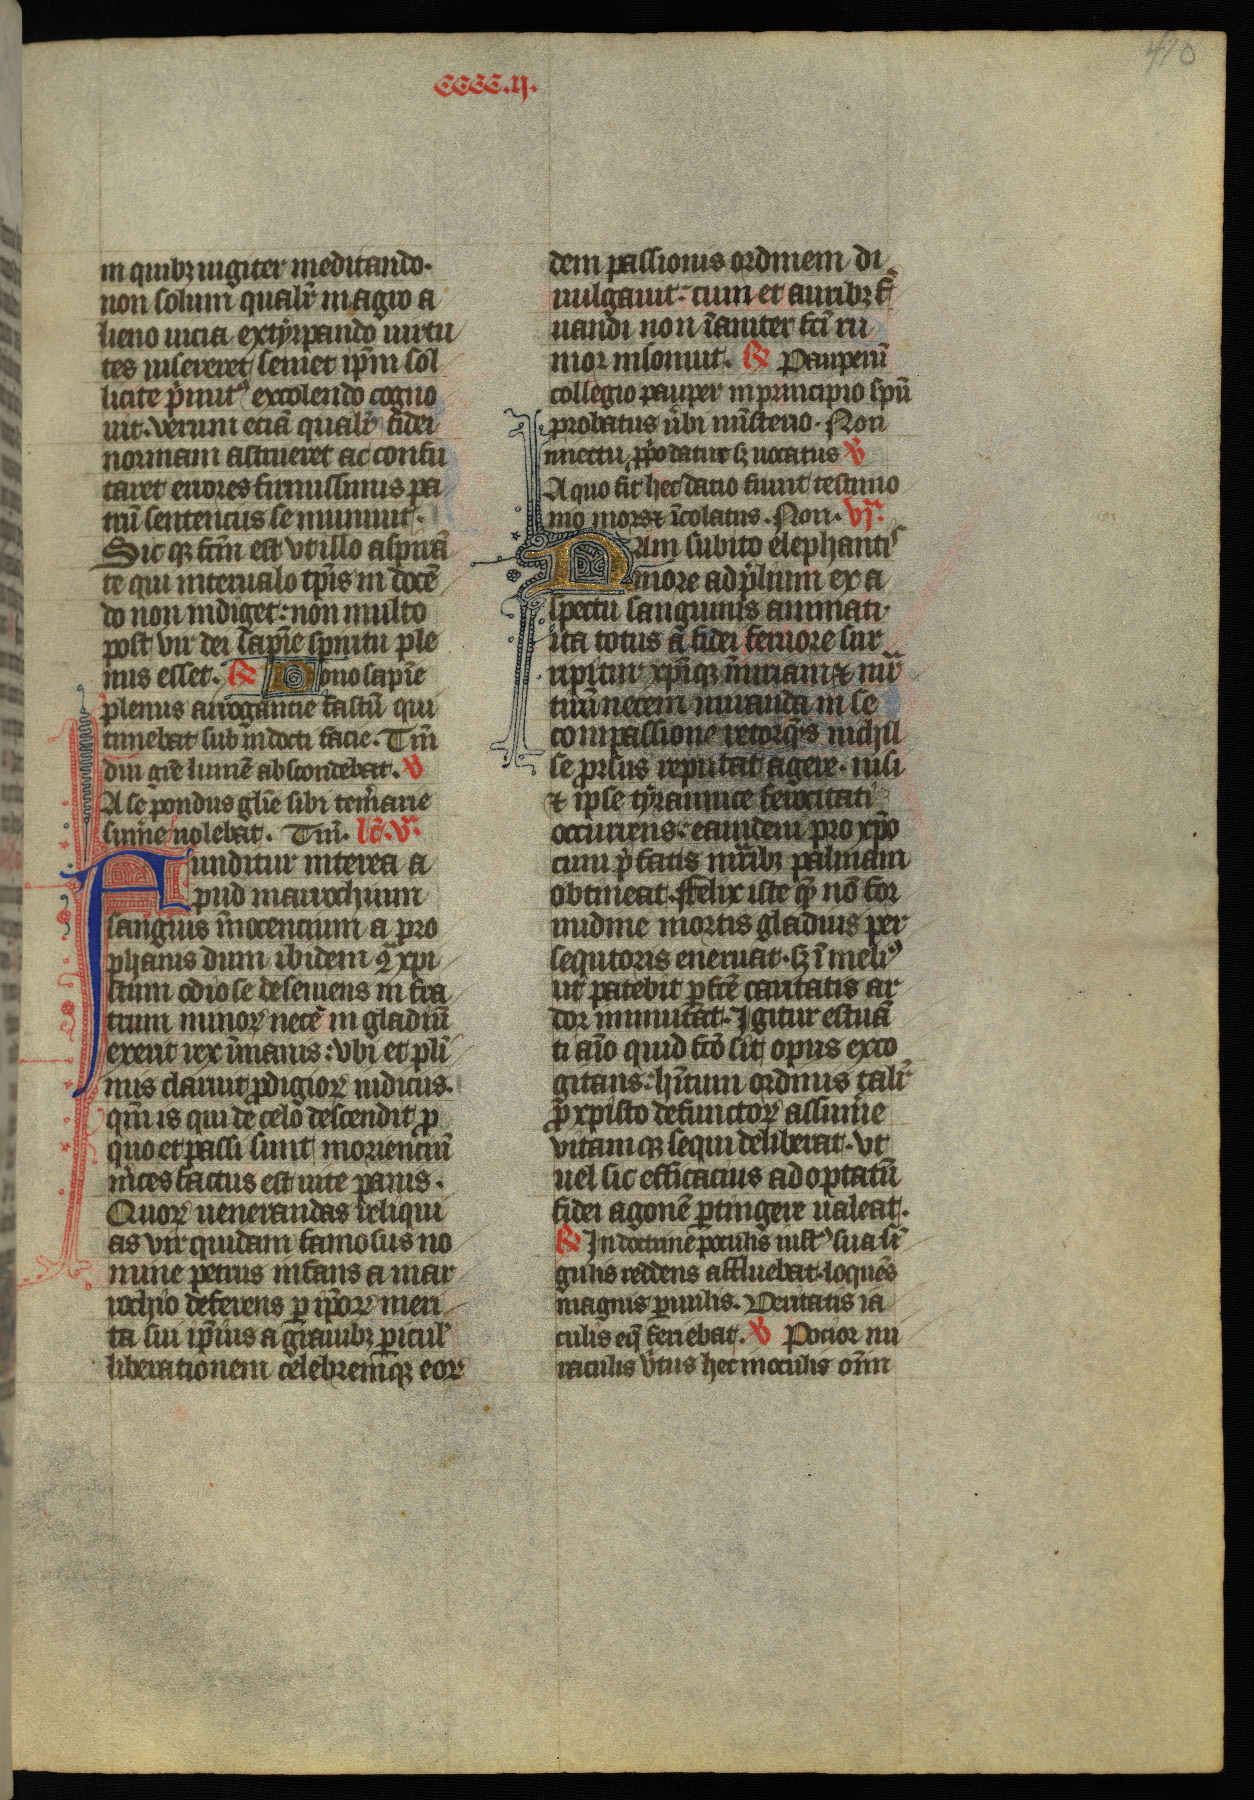 CCCC.ij.
410
in quibꝫ iugiter meditando.
non solum qualiter magro a
lieno uicia extirpando uirtu
tes insereret semet ip̄m sol
licite p̄muit excolendo cogno
uit. verum eciā qualiter fidei
normam astrueret ac confu
taret errores firmissimis pa
trū sentenciis se muniuit.
Sic qꝫ fc̄m est vt illo aspirā
te qui interuallo tp̄is in docē
do non indiget: non multo
post vir dei sapīe spiritu ple
nus esset. R̷ Dono sapīe
plenus arrogancie fastū qui
timebat sub indocti facie. Tm̄
diu grē lumē abscondebat. V̷
A se pondus glīe sibi temerarie
sumē nolebat. Tm̄. lc̄. v̄.
Funditur interea a
pud marrochium
sanguis īnocencium a pro
phanis dum ibidem q̄ xpi
stum odio se deseuiens in fra
trum minoꝝ necē in gladiū
exerit rex īmanis: vbi et pli
mis claruit ꝓdigioꝝ iudiciis.
qm̄ is qui de celo descendit p̄
quo et passi sunt moriencium
m̄ces factus est uite panis.
Quoꝝ uenerandas reliqui
as vir quidam famosus no
mine petrus infans a mar
rochio deferens ꝑ ip̄oꝝ meri
ta sui ip̄ius a grauibꝫ ꝑicul
liberationem celebremqꝫ eoꝝ
dem passionis ordinem di
uulgauit: cum et auribꝫ f̄
nandi non īaniter sc̄i ru
mor insonuit. R̷ Pauperū
collegio pauper in principio spū
probatus v̄bi mīsterio. Non
iniectu ꝓpo datur sꝫ uocatus V̷
A quo fit hec datio fiunt testimo
nio mors ⁊ īcolatus. Non. vj.
Nam subito elephanti
more ad p̄lium ex a
spectu sanguinis animati
ita totus ā fidei feruore sur
ripitur xp̄iqꝫ iniuriam ⁊ mr̄
tirū necem miranda in se
compassione retorqꝰs nichil
se prsus reputat agere. nisi
⁊ ipse tyrannice ferocitati
occurrens: eamdem pro xp̄o
cum p̄fatis mr̄ibꝫ palmam
obtineat. Felix iste qꝫ nō for
midine mortis gladius per
sequtoris eneruat. sꝫ ī meliꝰ
ut patebit ꝑfc̄e caritatis ar
dor immutat. Igitur estuā
ti aīo quid fc̄o sit opus exco
gitans: hītum ordinis talit̄
p̄ xpisto defunctoꝝ assume
vitamqꝫ sequi deliberat. vt
uel sic efficacius ad optatū
fidei agonē ꝑtingere ualeat.
R̷ In doctrine poculis iustꝰ sua sī
gulis reddens affluebat. loquēs
magnis ꝑuulis. Veritatis ia
culis eqꝫ feriebat. V̷ Pocior mi
raculis v̄tus hec in oculis om̄